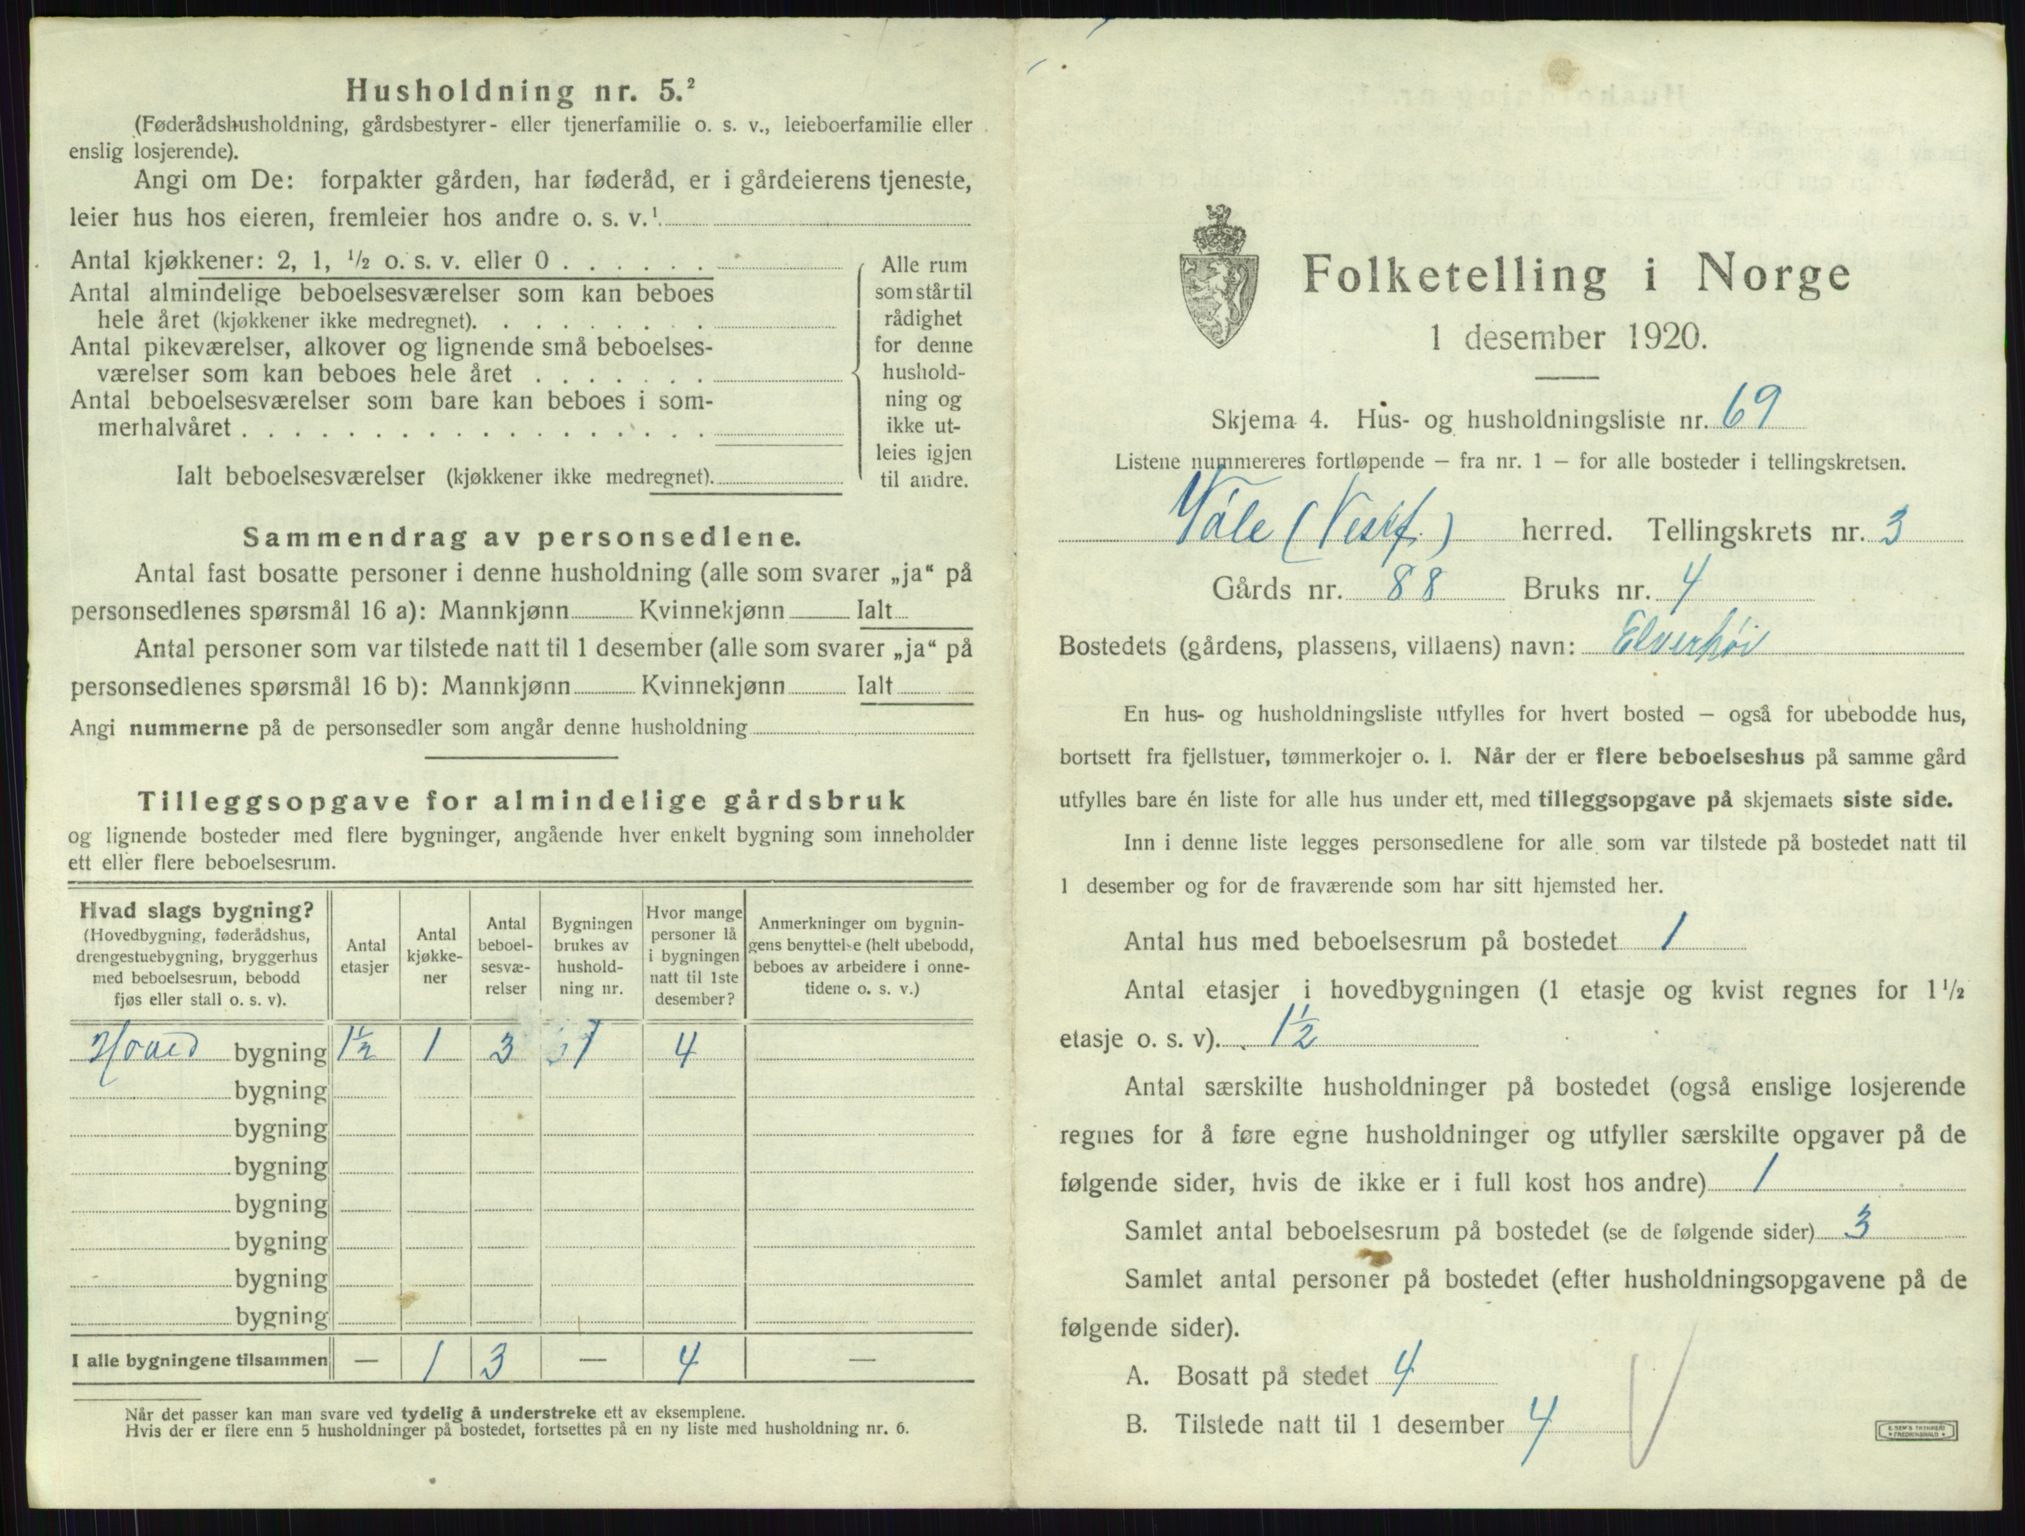 Husholdning nr. 5.²
(Føderådshusholdning, gårdsbestyrer- eller tjenerfamilie o. s. v., leieboerfamilie eller
enslig losjerende).
Angi om De: forpakter gården, har føderåd, er i gårdeierens tjeneste,
leier hus hos eieren, fremleier hos andre o. s. v.¹
Antal kjøkkener: 2, 1, ½ o. s. v. eller 0 . . . . . .
Antal almindelige beboelsesværelser som kan beboes
hele året (kjøkkener ikke medregnet). . . . . . . . .
Antal pikeværelser, alkover og lignende små beboelses-
værelser som kan beboes hele året . . . . . . .
Antal beboelsesværelser som bare kan beboes i som-
merhalvåret . . . . . . . . . . . . . . . . . .
Ialt beboelsesværelser (kjøkkener ikke medregnet).
Alle rum
som står til
rådighet
for denne
hushold-
ning og
ikke ut-
leies igjen
til andre.
Sammendrag av personsedlene.
Antal fast bosatte personer i denne husholdning (alle som svarer „ja“ på
personsedlenes spørsmål 16 a): Mannkjønn Kvinnekjønn Ialt
Antal personer som var tilstede natt til 1 desember (alle som svarer „ja“ på
personsedlenes spørsmål 16 b): Mannkjønn Kvinnekjønn Ialt
Angi nummerne på de personsedler som angår denne husholdning
Tilleggsopgave for almindelige gårdsbruk
og lignende bosteder med flere bygninger, angående hver enkelt bygning som inneholder
ett eller flere beboelsesrum.
Hvad slags bygning?
(Hovedbygning, føderådshus,
drengestuebygning, bryggerhus
med beboelsesrum, bebodd
fjøs eller stall o. s. v).
Antal
etasjer
Antal
kjøkke-
ner
Antal
beboel-
sesvæ-
relser
Bygningen
brukes av
hushold-
ning nr.
Hvor mange
personer lå
i bygningen
natt til 1ste
desember?
Anmerkninger om bygnin-
gens benyttelse (helt ubebodd,
beboes av arbeidere i onne-
tidene o. s. v.)
Hoved bygning 1½ 1 3 1 4
bygning
bygning
bygning
bygning
bygning
bygning
bygning
I alle bygningene tilsammen — 1 3 — 4 —
Når det passer kan man svare ved tydelig å understreke ett av eksemplene.
Hvis der er flere enn 5 husholdninger på bostedet, fortsettes på en ny liste med husholdning nr. 6.
Folketelling i Norge
1 desember 1920.
Skjema 4. Hus- og husholdningsliste nr. 69
Listene nummereres fortløpende — fra nr. 1 — for alle bosteder i tellingskretsen.
Våle (Vestf.) herred. Tellingskrets nr. 3
Gårds nr. 88 Bruks nr. 4
Bostedets (gårdens, plassens, villaens) navn: Elverhøi
En hus- og husholdningsliste utfylles for hvert bosted — også for ubebodde hus,
bortsett fra fjellstuer, tømmerkojer o. l. Når der er flere beboelseshus på samme gård
utfylles bare én liste for alle hus under ett, med tilleggsopgave på skjemaets siste side.
Inn i denne liste legges personsedlene for alle som var tilstede på bostedet natt til
1 desember og for de fraværende som har sitt hjemsted her.
Antal hus med beboelsesrum på bostedet 1
Antal etasjer i hovedbygningen (1 etasje og kvist regnes for 1½
etasje o. s. v). 1½
Antal særskilte husholdninger på bostedet (også enslige losjerende
regnes for å føre egne husholdninger og utfyller særskilte opgaver på de
følgende sider, hvis de ikke er i full kost hos andre) 1
Samlet antal beboelsesrum på bostedet (se de følgende sider) 3
Samlet antal personer på bostedet (efter husholdningsopgavene på de
følgende sider).
A. Bosatt på stedet 4
B. Tilstede natt til 1 desember 4